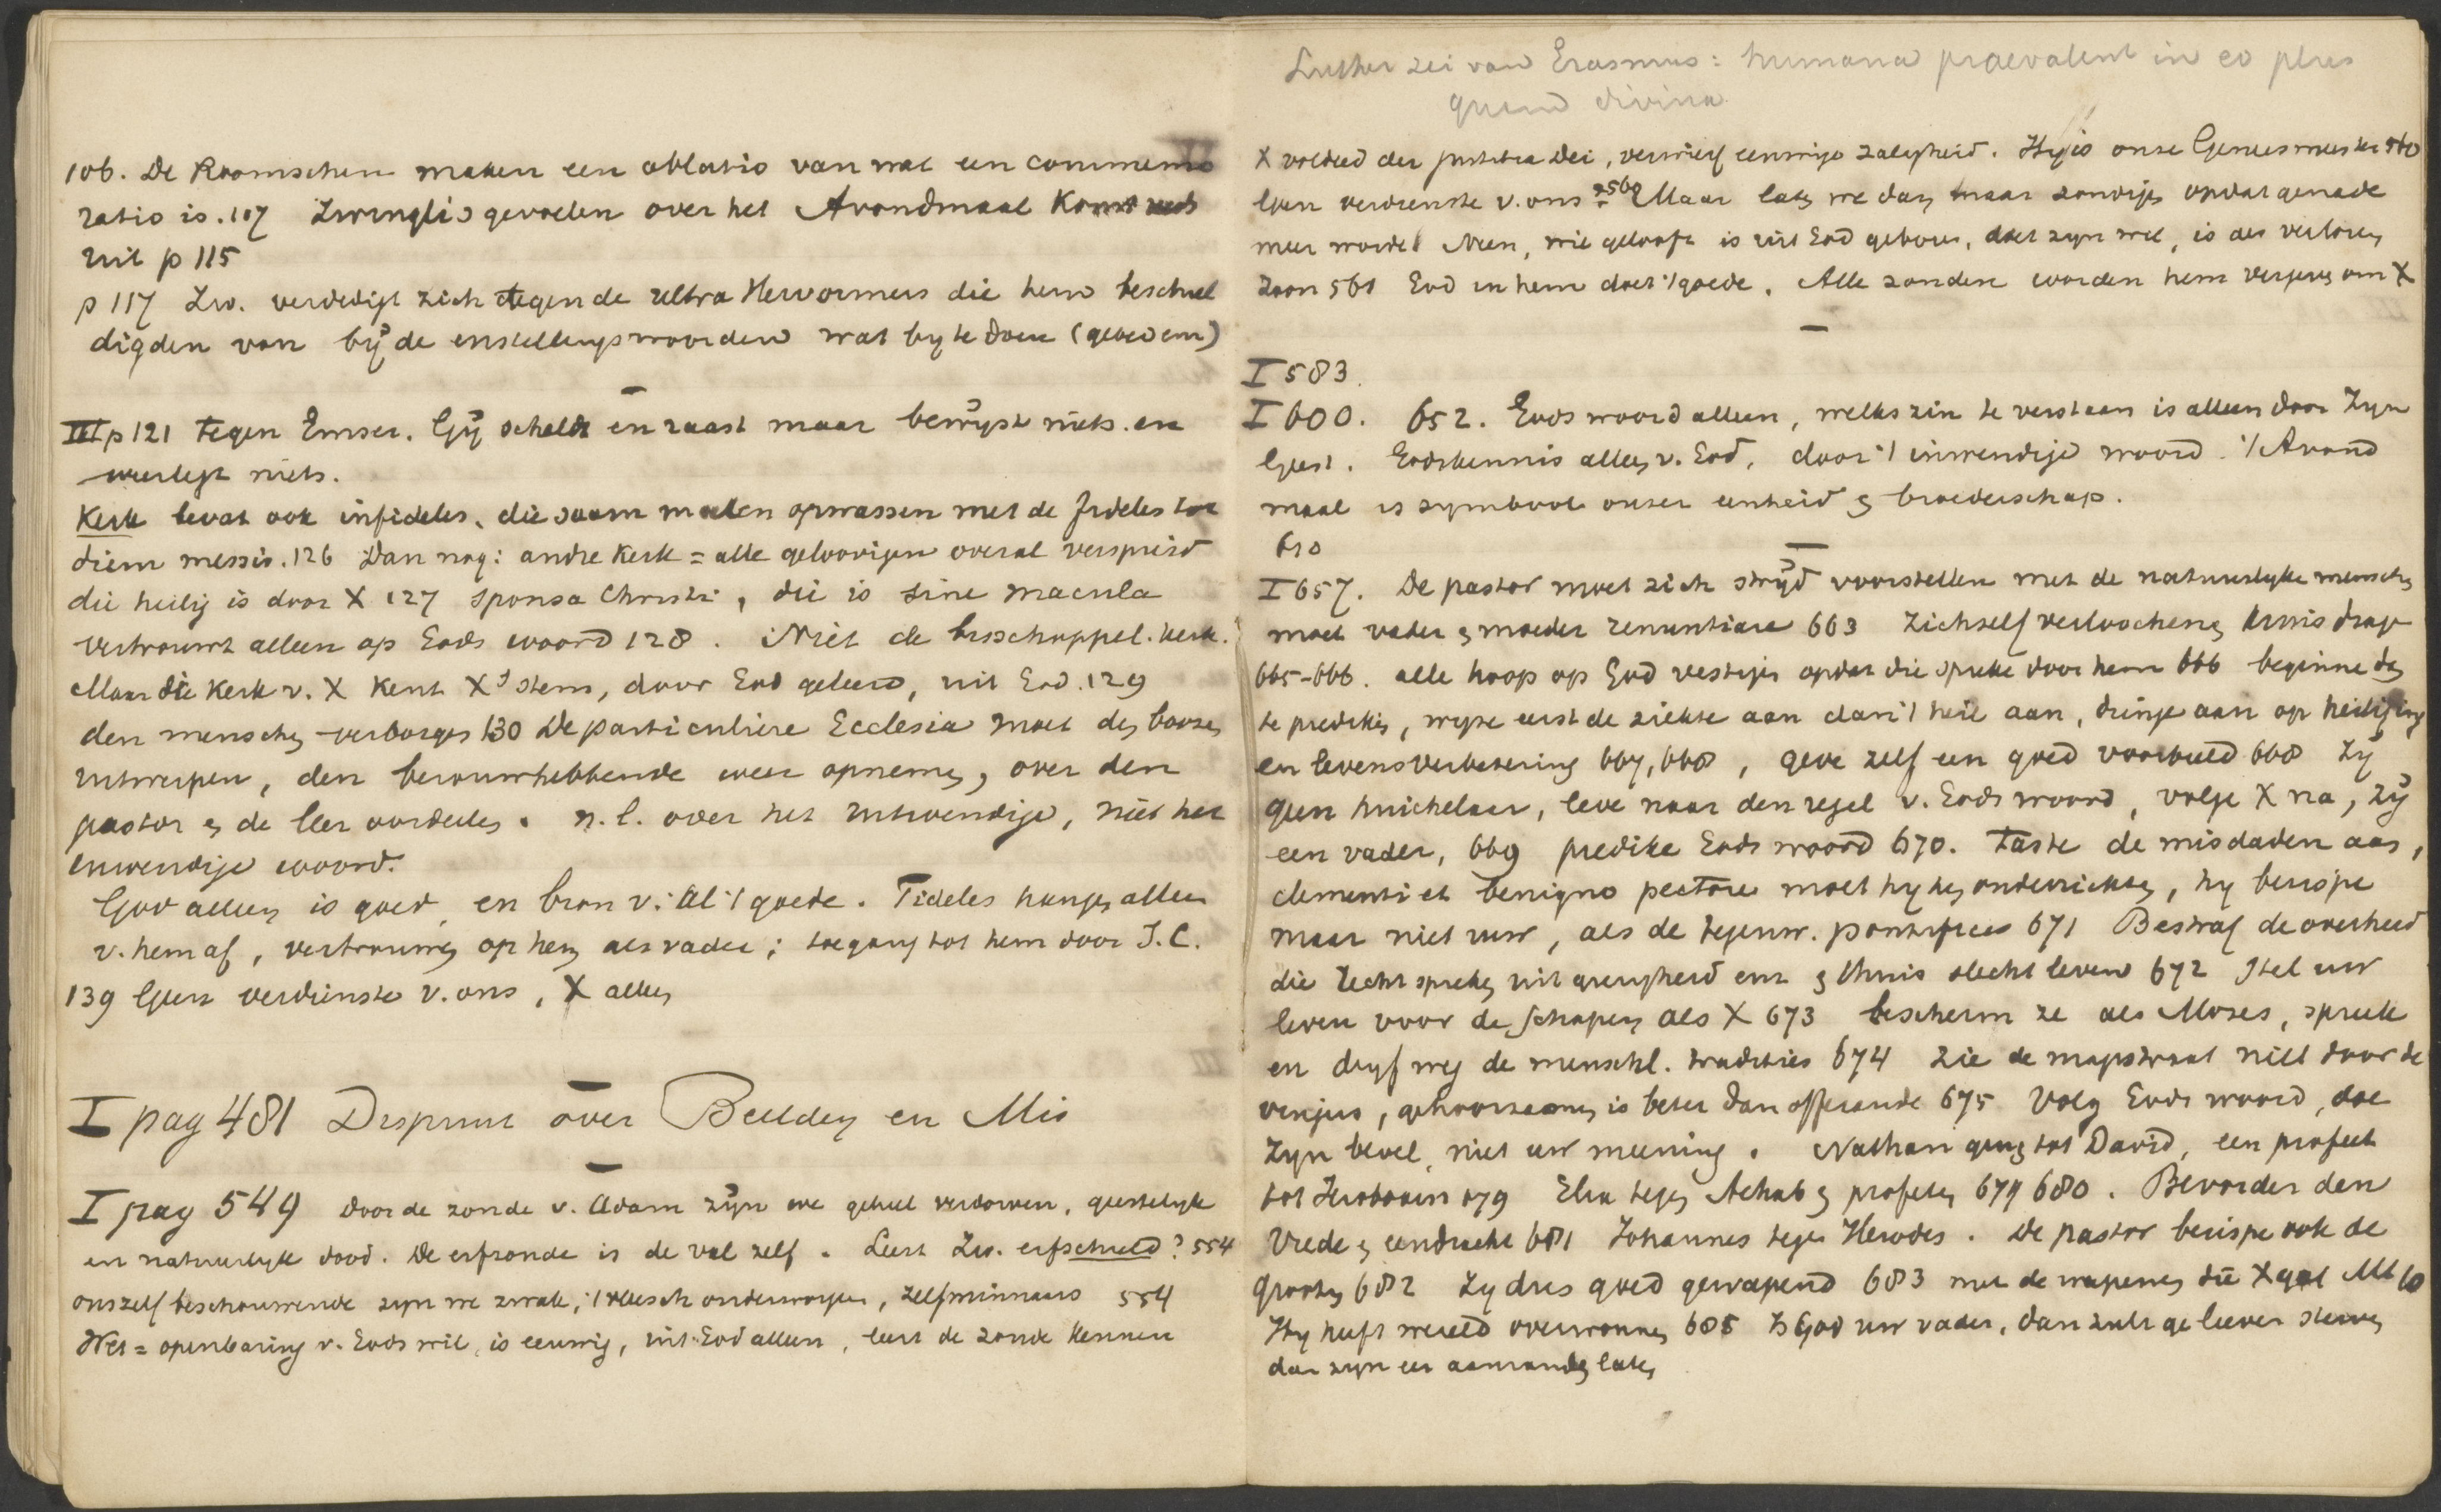 106. De Roomschen maken een oblatio van wat een commemo
ratio is. 107 Zwingli's gevoelen over het Avondmaal komt
uit p 115
p 117 Zw. verdedigt zich tegen de ultra Hervormers die hem beschul
digden van bij de instellingswoorden wat by te doen (gebeden)
III p 121 tegen Emser. Gij scheldt en raast maar bewijst niets en
weerlegt niets.
Kerk bevat ook infideles, die saam moeten opwassen met de fideles tot
diem messis. 126 Dan nog: andre Kerk = alle geloovigen overal verspreid
die heilig is door X 127 sponsa Christi, die is sine macula
vertrouwt alleen op Gods woord 128. Niet de bisschoppel. kerk.
Maar die Kerk v. X kent X's stem, door God geleerd, uit God. 129
den menschen verborgen 130 De particuliere Ecclesia moet den boozen
uitwerpen, den berouwhebbende weer opnemen, over den
pastor en de leer oordeelen. n.l. over het uitwendige, niet het
inwendige woord.
God alleen is goed, en bron v. al 't goede. Fideles hangen alleen
v. hem af, vertrouwen op hem als vader; toegang tot hem door J.C.
139 Geen verdienste v. ons, X alleen
I pag 481 Dispuut over Beelden en Mis
I pag 549 door de zonde v. Adam zijn we geheel verdorven, geestelijk
en natuurlyk dood. De erfzonde is de val zelf. Leert Zw. erfschuld? 554
onszelf beschouwende zyn we zwak, 't vleesch onderworpen, zelfminnaars 554
Wet = openbaring v. Gods wil, is eeuwig, uit God alleen, leert de zonde kennen
Luther zei van Erasmus: humana praevalent in eo plus
quam divina.
X voldeed der justitia Dei, verwierf eeuwige zaligheid. Hy is onze Geneesmeester 560
Geen verdienste v. ons 560 Maar laten we dan maar zondigen opdat genade
meer worde! Neen, wie gelooft is uit God geboren, doet zyn wil, is als verloren
zoon 561 God in hem doet 't goede. Alle zonden worden hem vergeven om X
I 583.
I 600. 652. Gods woord alleen, welks zin te verstaan is alleen door Zyn
Geest. Godskennis alleen v. God, door 't inwendige woord. 't Avond
maal is symbool onzer eenheid en broederschap.
610
I 657. De pastor moet zich strijd voorstellen met de natuurlyke menschen
moet vader en moeder renuntiare 663 zichzelf verloochenen kruis dragen
665-666. alle hoop op God vestigen opdat die spreke door hem 666 beginne dan
te prediken, wyze eerst de ziekte aan dan 't heil aan, dringe aan op heiliging
en levensverbetering 667, 668, geve zelf een goed voorbeeld 668 Zij
geen huichelaar, leve naar den regel v. Gods woord, volge X na, zij
een vader, 669 predike Gods woord 670. Taste de misdaden aan,
clementi et benigno pectore moet hy hen onderrichten, hy berispe
maar niet ruw, als de tegenw. pontifices 671 Bestraf de overheid
die recht spreken uit gierigheid enz en thuis slecht leven 672 Stel uw
leven voor de schapen als X 673 bescherm ze als Mozes, spreek
en dryf weg de menschl. tradities 674 zie de magistraat niet door de
vingers, gehoorzaamen is beter dan offerande 675 Volg Gods woord, doe
Zyn bevel, niet uw meening. Nathan ging tot David, een profeet
tot Jerobeam 679 Elia tegen Achab en profeten 679 680. Bevorder den
Vrede en eendracht 681 Johannes tegen Herodes. De pastor berispe ook de
grooten 682 Zy dus goed gewapend 683 met de wapenen die X gaf Mt 10
Hy heeft wereld overwonnen 685 Is God uw vader, dan zult ge liever sterven
dan zyn eer aanranden laten